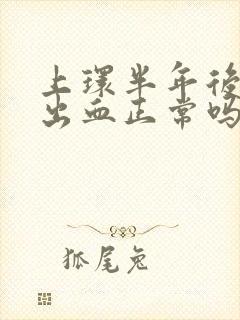 上環半年後
出血正常吗
狐尾兔